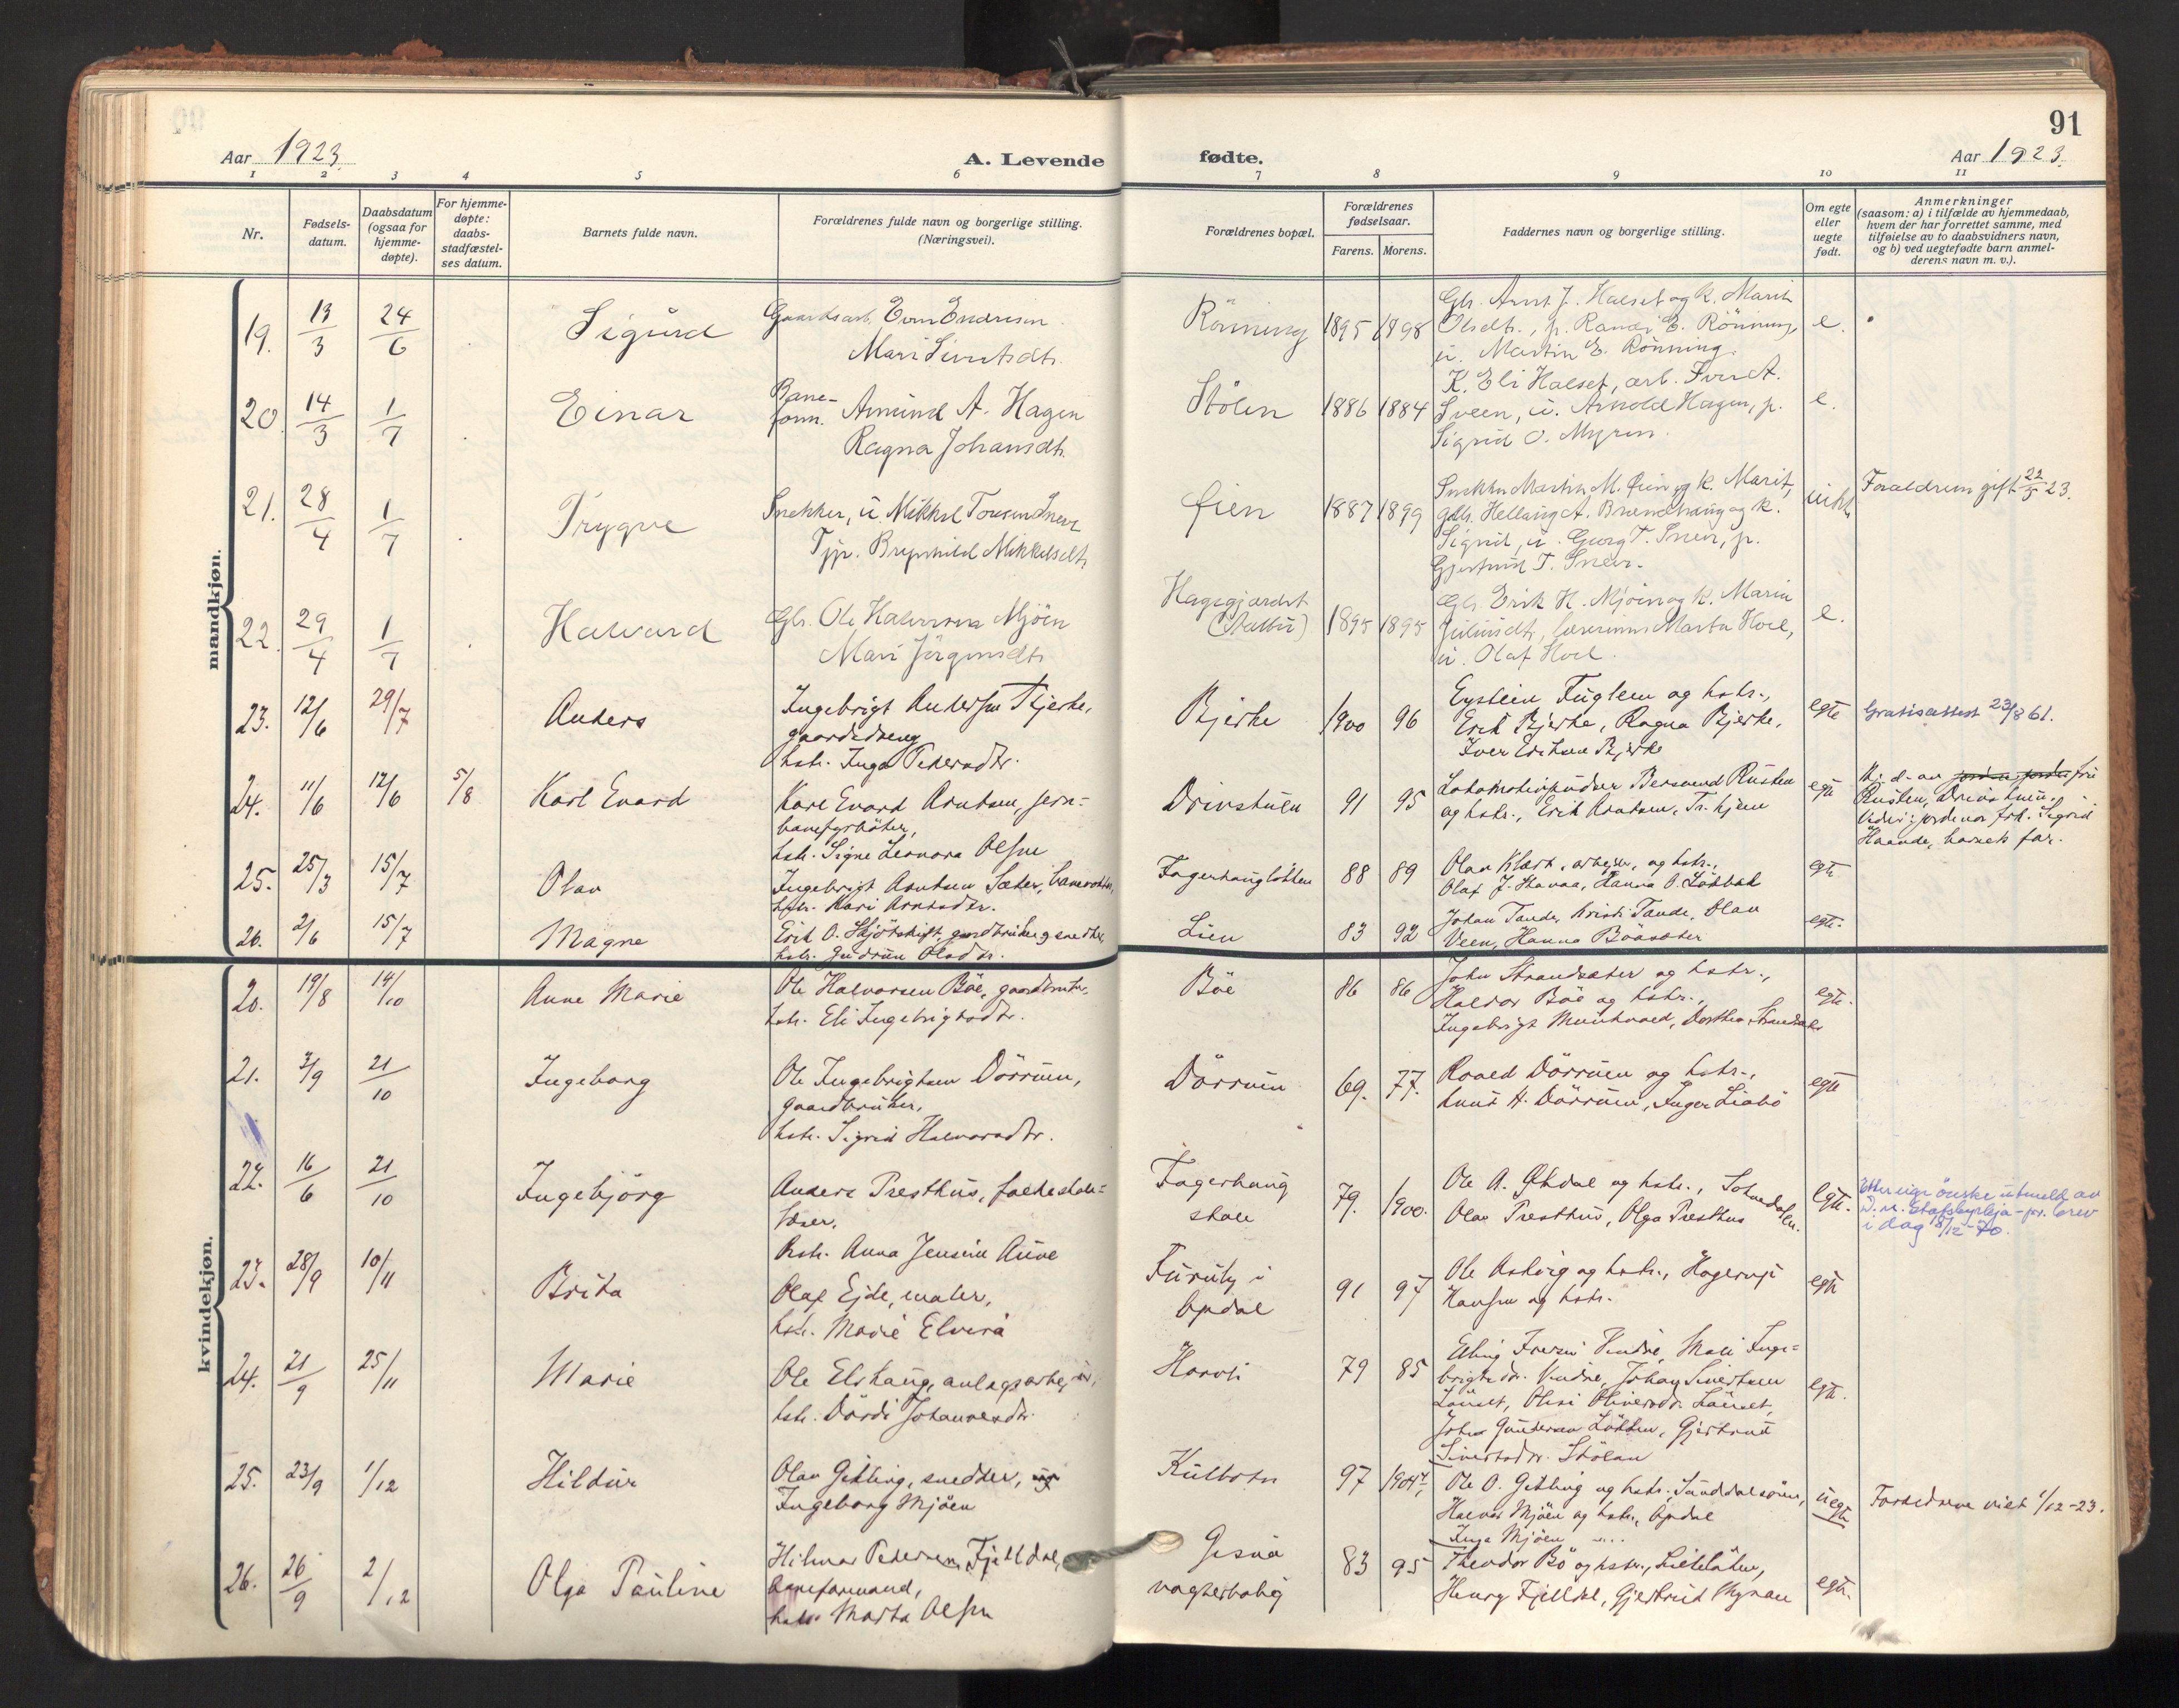 91
Aar 1923.
A. Levende
fødte.
Aar 1923.
1 2 3 4 5 6 7 8 9 10 11
Nr.
Fødsels-
datum.
Daabsdatum
(ogsaa for
hjemme-
døpte).
For hjemme-
døpte:
daabs-
stadfæstel-
ses datum.
Barnets fulde navn.
Forældrenes fulde navn og borgerlige stilling.
(Næringsvei).
Forældrenes bopæl.
Forældrenes
fødselsaar.
Farens. Morens.
Faddernes navn og borgerlige stilling.
Om egte
eller
uegte
født.
Anmerkninger
(saasom: a) i tilfælde av hjemmedaab,
hvem der har forrettet samme, med
tilføielse av to daabsvidners navn,
og b) ved uegtefødte barn anmel-
derens navn m. v.).
mandkjøn.
19. 13/3 24/6 Sigurd
Gaardsarb. Even Endresen
Mari Sivertsdtr.
Rönning 1895 1898
Gbr. Arnt J. Halset og k. Marit
Olsdtr., p. Randi E. Rönning,
u. Martin E. Rönning.
e.
20. 14/3 1/7 Einar
Bane-
form. Amund A. Hagen
Ragna Johansdtr.
Stölen 1886 1884
K. Eli Halset, arb. Iver A.
Sveen, u. Arnold Hagen, p.
Sigrid O. Myren.
e.
21. 28/4 1/7 Trygve
Snekker, u. Mikkel Toresen Sneve
Tjp. Brynhild Mikkelsdtr.
Øien 1887 1899
Snekker Martin M. Øien og k. Marit,
gbr. A. Brendhaug og k.
Sigrid, u. Georg T. Sneve, p.
Gjertrud T. Sneve.
uekte
Forældrene gift 22/5 23.
22. 29/4 1/7 Halvard
Gbr. Ole Halvorsen Mjöen
Mari Jörgensdtr.
Hagegjærdet
1895 1895
Gbr. Erik H. Mjöen og k. Marie
Juliusdtr., lærerinne Marta Hoel,
u. Olaf Hoel.
e.
23. 12/6 29/7 Anders
Ingebrigt Andersen Bjerke,
gaardsdreng
hstr. Inga Pedersdtr.
Bjerke 1900 96
Eystein Fuglem og hstr.,
Erik Bjerke, Ragna Bjerke,
Iver Eriksen Bjerke
egte
Gratisattest 23/8 61.
24. 11/6 12/6 5/8 Karl Evard
Karl Evard Arntsen, jern-
banefyrböter,
hstr. Signe Leonora Olsen
Drivstuen 91 95
Lokomotivpudser Bersvend Rusten
og hstr., Erik Arntsen, Tr.hjem
egte
Hj. d. av jordm. fru
Rusten, Drivstuen.
Vidner: jordmor frk. Sigrid
Haande, barnets far.
25. 25/3 15/7 Olav
Ingebrigt Arntsen Sæter, banevokter,
hstr. Kari Arntsdtr.
Fagerhaugløkken 88 89
Olav Klæt, arbeider, og hstr.,
Olaf J. Havaa, Hanna O. Løkbak
egte
26. 2/6 15/7 Magne
Erik O. Skjötskift, gaardbruker og snedker,
hstr. Gudrun Olsdtr.
Lien 83 92
Johan Tande, Kristi Tande, Olav
Veen, Hanna Böasæter
egte.
kvindekjøn.
20. 19/8 14/10 Anne Marie
Ole Halvorsen Böe, gaardbruker,
hstr. Eli Ingebrigtsdtr.
Böe 86 86
John Strandsæter og hstr.,
Haldor Böe og hstr.,
Ingebrigt Munkvold, Dorthea Strandsæter
egte.
21. 3/9 21/10 Ingeborg
Ole Ingebrigtsen Dörrum,
gaardbruker,
hstr. Sigrid Halvorsdtr.
Dörrum 69. 77.
Roald Dörrum og hstr.,
Knut H. Dörrum, Inger Liabö
egte
22. 16/6 21/10 Ingebjörg
Anders Presthus, folkeskole-
lærer,
hstr. Anna Jensine Aune
Fagerhaug
skole 79. 1900.
Ole A. Økdal og hstr., Soknedalen.
Olav Presthus, Olga Presthus
egte.
Etter eige önske utmeldt av
D. n. Statskyrkja - pr. brev
i dag 18/12-70.
23. 28/9 10/11 Brita
Olaf Ejde, maler,
hstr. Marie Elvira
Furuly i
Opdal 91 97
Ole Aalvig og hstr., Hagerup
Hansen og hstr.
egte
24. 21/9 25/11 Marie
Ole Elshaug, anlægsarbejder,
hstr. Dordi Johannesdtr.
Horvli 79 85
Eling Iversen Vindal, Mali Inge-
brigtsdtr. Vindal, Johan Sivertsen
Lönset, Olina Oliversdtr. Lönset,
John Gundersen Løkken, Gjertrud
Sivertsdtr. Stölan
egte.
25. 23/9 1/12 Hildur
Olav Gikling, snedker, ug
Ingeborg Mjöen
Kulbotn 97 1904,
Ole O. Gikling og hstr., Sunddalsören,
Halvor Mjöen og hstr., Opdal
Inga Mjöen
uegte
Forældrene viet 1/12-23.
26. 26/9 2/12 Olga Pauline
Hilmar Pedersen Fjelldal,
baneformand,
hstr. Marta Olsen
Gisna
vogterbolig 83 95
Theodor Bö og hstr., Lilleløken,
Henry Fjelldal, Gjertrud Myran
egte.